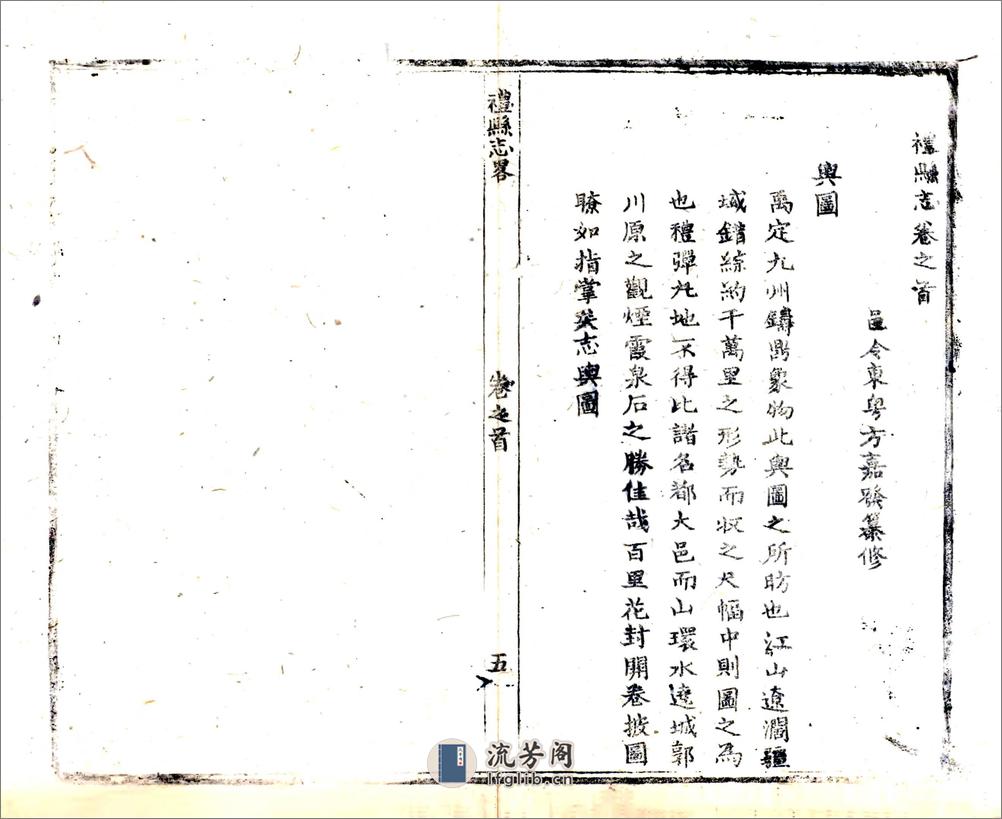 禮縣志卷之首
邑令東粤方嘉發纂修
輿圖
禹定九州鑄鼎象物此輿圖之所昉也江山遼濶疆
域錯綜納千萬里之形勢而收之尺幅中則圖之為
也禮彈丸地不得比諸名都大邑而山環水遶城郭
川原之觀煙霞泉石之勝佳哉百里花封開卷披圖
瞭如指掌矣志輿圖
禮縣志畧
卷之首
五
流芳阁
lfglib.cn